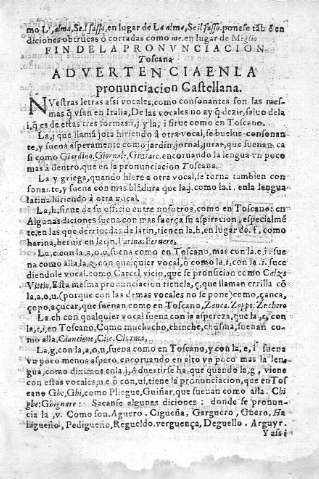 mo L'alma, Se'l sasso, en lugar de La alma, Se il sasso. ponese tãb ẽ en
diciones obtrucas ò cortadas como me. en lugar de Meglio
FIN DE LA PRONVNCIACION
Toscana
ADVERTENCIA EN LA
pronunciacion Castellana.
NVestras letras assi vocales, como consonantes son las mes-
mas q̃ vsan en Italia, De las vocales no ay q̃ dezir, solo de la
i, q̃ es de estas tres formas. j y la, i sirue como en Toscano.
La, j que llama jota hiriendo à otra vocal, se buelue consonan
te, y suena asperamente como jardin, jornal, jurar, que suenan ca
si como Giardino, Giornale, Giurare. encoruando la lengua vn poco
mas à dentro, que en la pronunciacion Toscana.
La y griega, quando hiere à otra vocal, se torna tambien con
sonante, y suena con mas blãdura que la, j. como la. i. en la lengua
latina. hiriendo à otra vocal.
La, h, sirue de su officio entre nosotros, como en Toscano: en
Algunas diciones suena con mas fuerça su aspiracion, especialmẽ
te, en las que deriuadas de latin, tienen la, h. en lugar de. f, como
harina, heruir en latin. Farina. Feruere.
La, c. con la. a, o, u, suena como en Toscano, mas con la. e. i. sue
na como alla, la, z. con qualquier vocal, como la. t, con la. i. suce
diendole vocal. como Carcel vicio, que se pronuncian como
Vitio, Esta mesma pronunciacion tiene la, ç, que llaman cerilla cõ
la, a. o, u. (porque con las demas vocales no se pone) como, çanca,
çopo, açucar, que suenan como en Toscano, Zanca. Zoppo. Zechero
La, ch con qualquier vocal suena con la aspereza, que la, c, con
la, e, i, en Toscano. Como muchacho, chinche, chusma, suenan co
mo alla,
La, g, con la, a, o, u, suena como en Toscano, y con la, e, i, suena
vn poco menos aspero, encoruando en alto vn poco mas la len-
gua, como diximos en la j, Aduertirse ha, que quando la, g, viene
con estas vocales, u, e ò con, ui, tiene la pronunciacion, que en Tos
cano Ghe, Ghi, como Pliegue, Guiñar, que suenan como alla.
ghe: Sacanse algunas diciones: donde se pronun-
cia la, v. Como son. Aguero. Cigueña, Garguero, Guero, Ha
lagueño, Pedigueño, Regueldo, verguença, Deguello, Arguyr.
Y assi